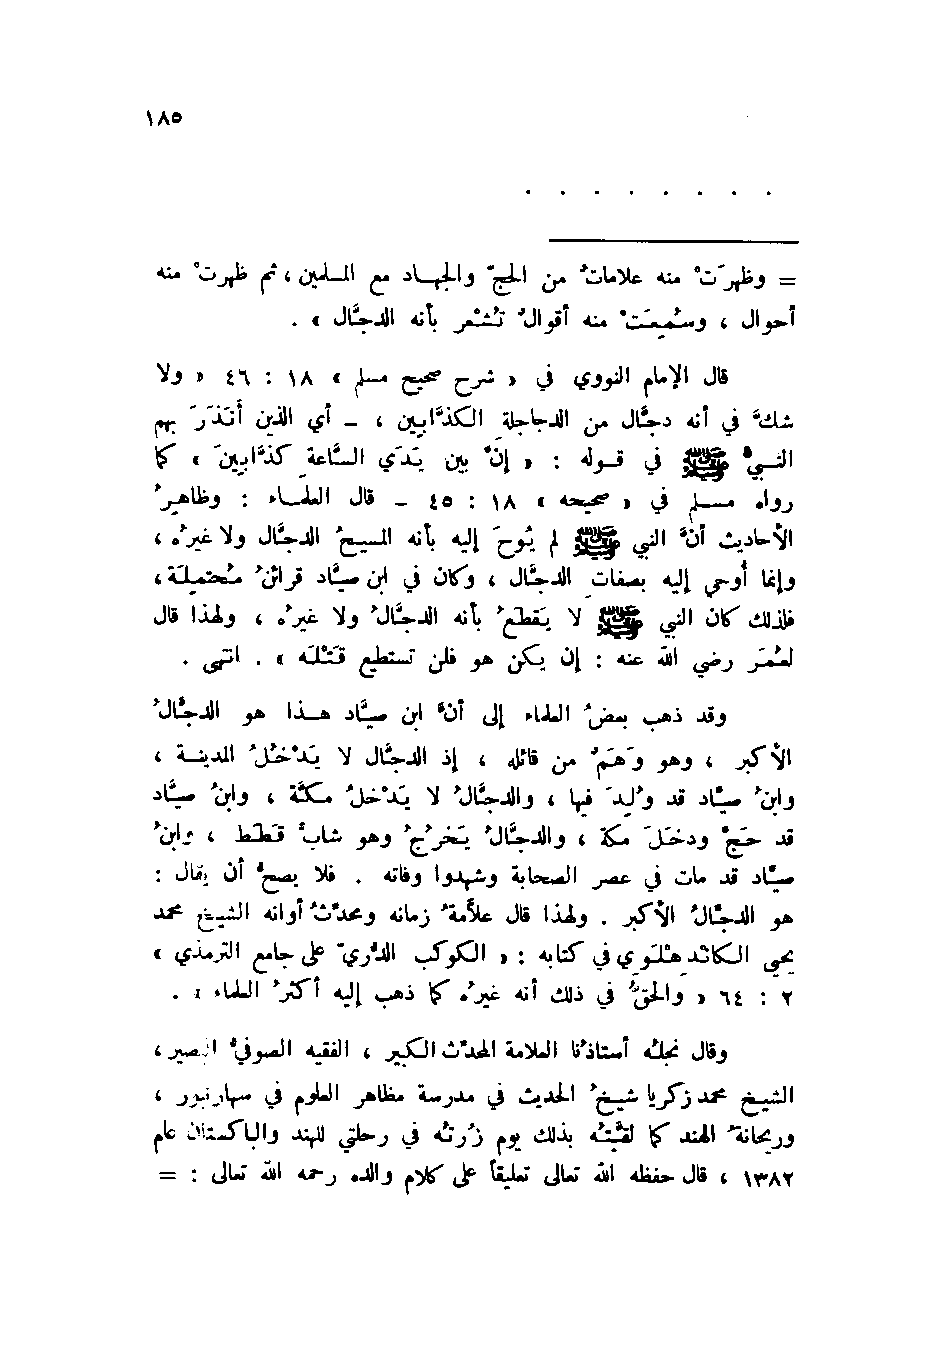 ١٨٥
. . . . . . . .
= وظهرَتْ منه علاماتُ من الحجّ والجهاد مع المسلمين ، ثم ظهرتْ منه
أحوال ، وسُمِعَتْ منه أقوالٌ تُشْعر بأنه الدجَّال » .
قال الإمام النووي في « شرح صحيح مسلم » ١٨ : ٤٦ « ولا
شكَّ في أنه دجَّال من الدجاجلةِ الكذَّابين ، – أي الذين أنذَرَ بهم
النبيُّ ﷺ في قوله : « إنَّ بين يَدَي السَّاعةِ كذَّابينَ » كما
رواه مسلم في « صحيحه » ١٨ : ٤٥ – قال العلماء : وظاهِرُ
الأحاديث أنَّ النبي ﷺ لم يُوحَ إليه بأنه المسيحُ الدجَّال ولا غيرُه ،
وإنما أُوحي إليه بصفاتِ الدجَّال ، وكان في ابن صيَّاد قرائنُ مُحتمِلَة ،
فلذلك كان النبي ﷺ لا يَقطَعُ بأنه الدجَّالُ ولا غيرُه ، ولهذا قال
لعُمَرَ رضي الله عنه : إن يكن هو فلن تستطيع قَتْلَه » . انتهى .
وقد ذهب بعضُ العلماء إلى أنَّ ابن صيَّاد هذا هو الدجَّالُ
الأكبر ، وهو وَهَمٌ من قائله ، إذ الدجَّال لا يَدْخُلُ المدينة ،
وابنُ صيَّاد قد وُلِدَ فيها ، والدجَّالُ لا يَدْخلُ مكَّة ، وابنُ صيَّاد
قد حَجَّ ودخَلَ مكة ، والدجَّالُ يَخرُجُ وهو شابٌّ قَطَط ، وابنُ
صيَّاد قد مات في عصر الصحابة وشهدوا وفاته . فلا يصحُّ أن يقال :
هو الدجَّالُ الأكبر . ولهذا قال علاَّمةُ زمانه ومحدّثُ أوانه الشيخ محمد
يحيى الكانْدِهْلَوي في كتابه : « الكوكب الدُّرّي على جامع الترمذي »
٢ : ٦٤ « والحقُّ في ذلك أنه غيرُه كما ذهب إليه أكثرُ العلماء » .
وقال نجلُه أستاذُنا العلامة المحدّث الكبير ، الفقيه الصوفيُّ البصير ،
الشيخ محمد زكريا شيخُ الحديث في مدرسة مظاهر العلوم في سهارنبور ،
وريحانةُ الهند كما لقَّبْتُه بذلك يوم زُرتُه في رحلتي للهند والباكستان عام
١٣٨٢ ، قال حفظه الله تعالى تعليقاً على كلام والده رحمه الله تعالى : =